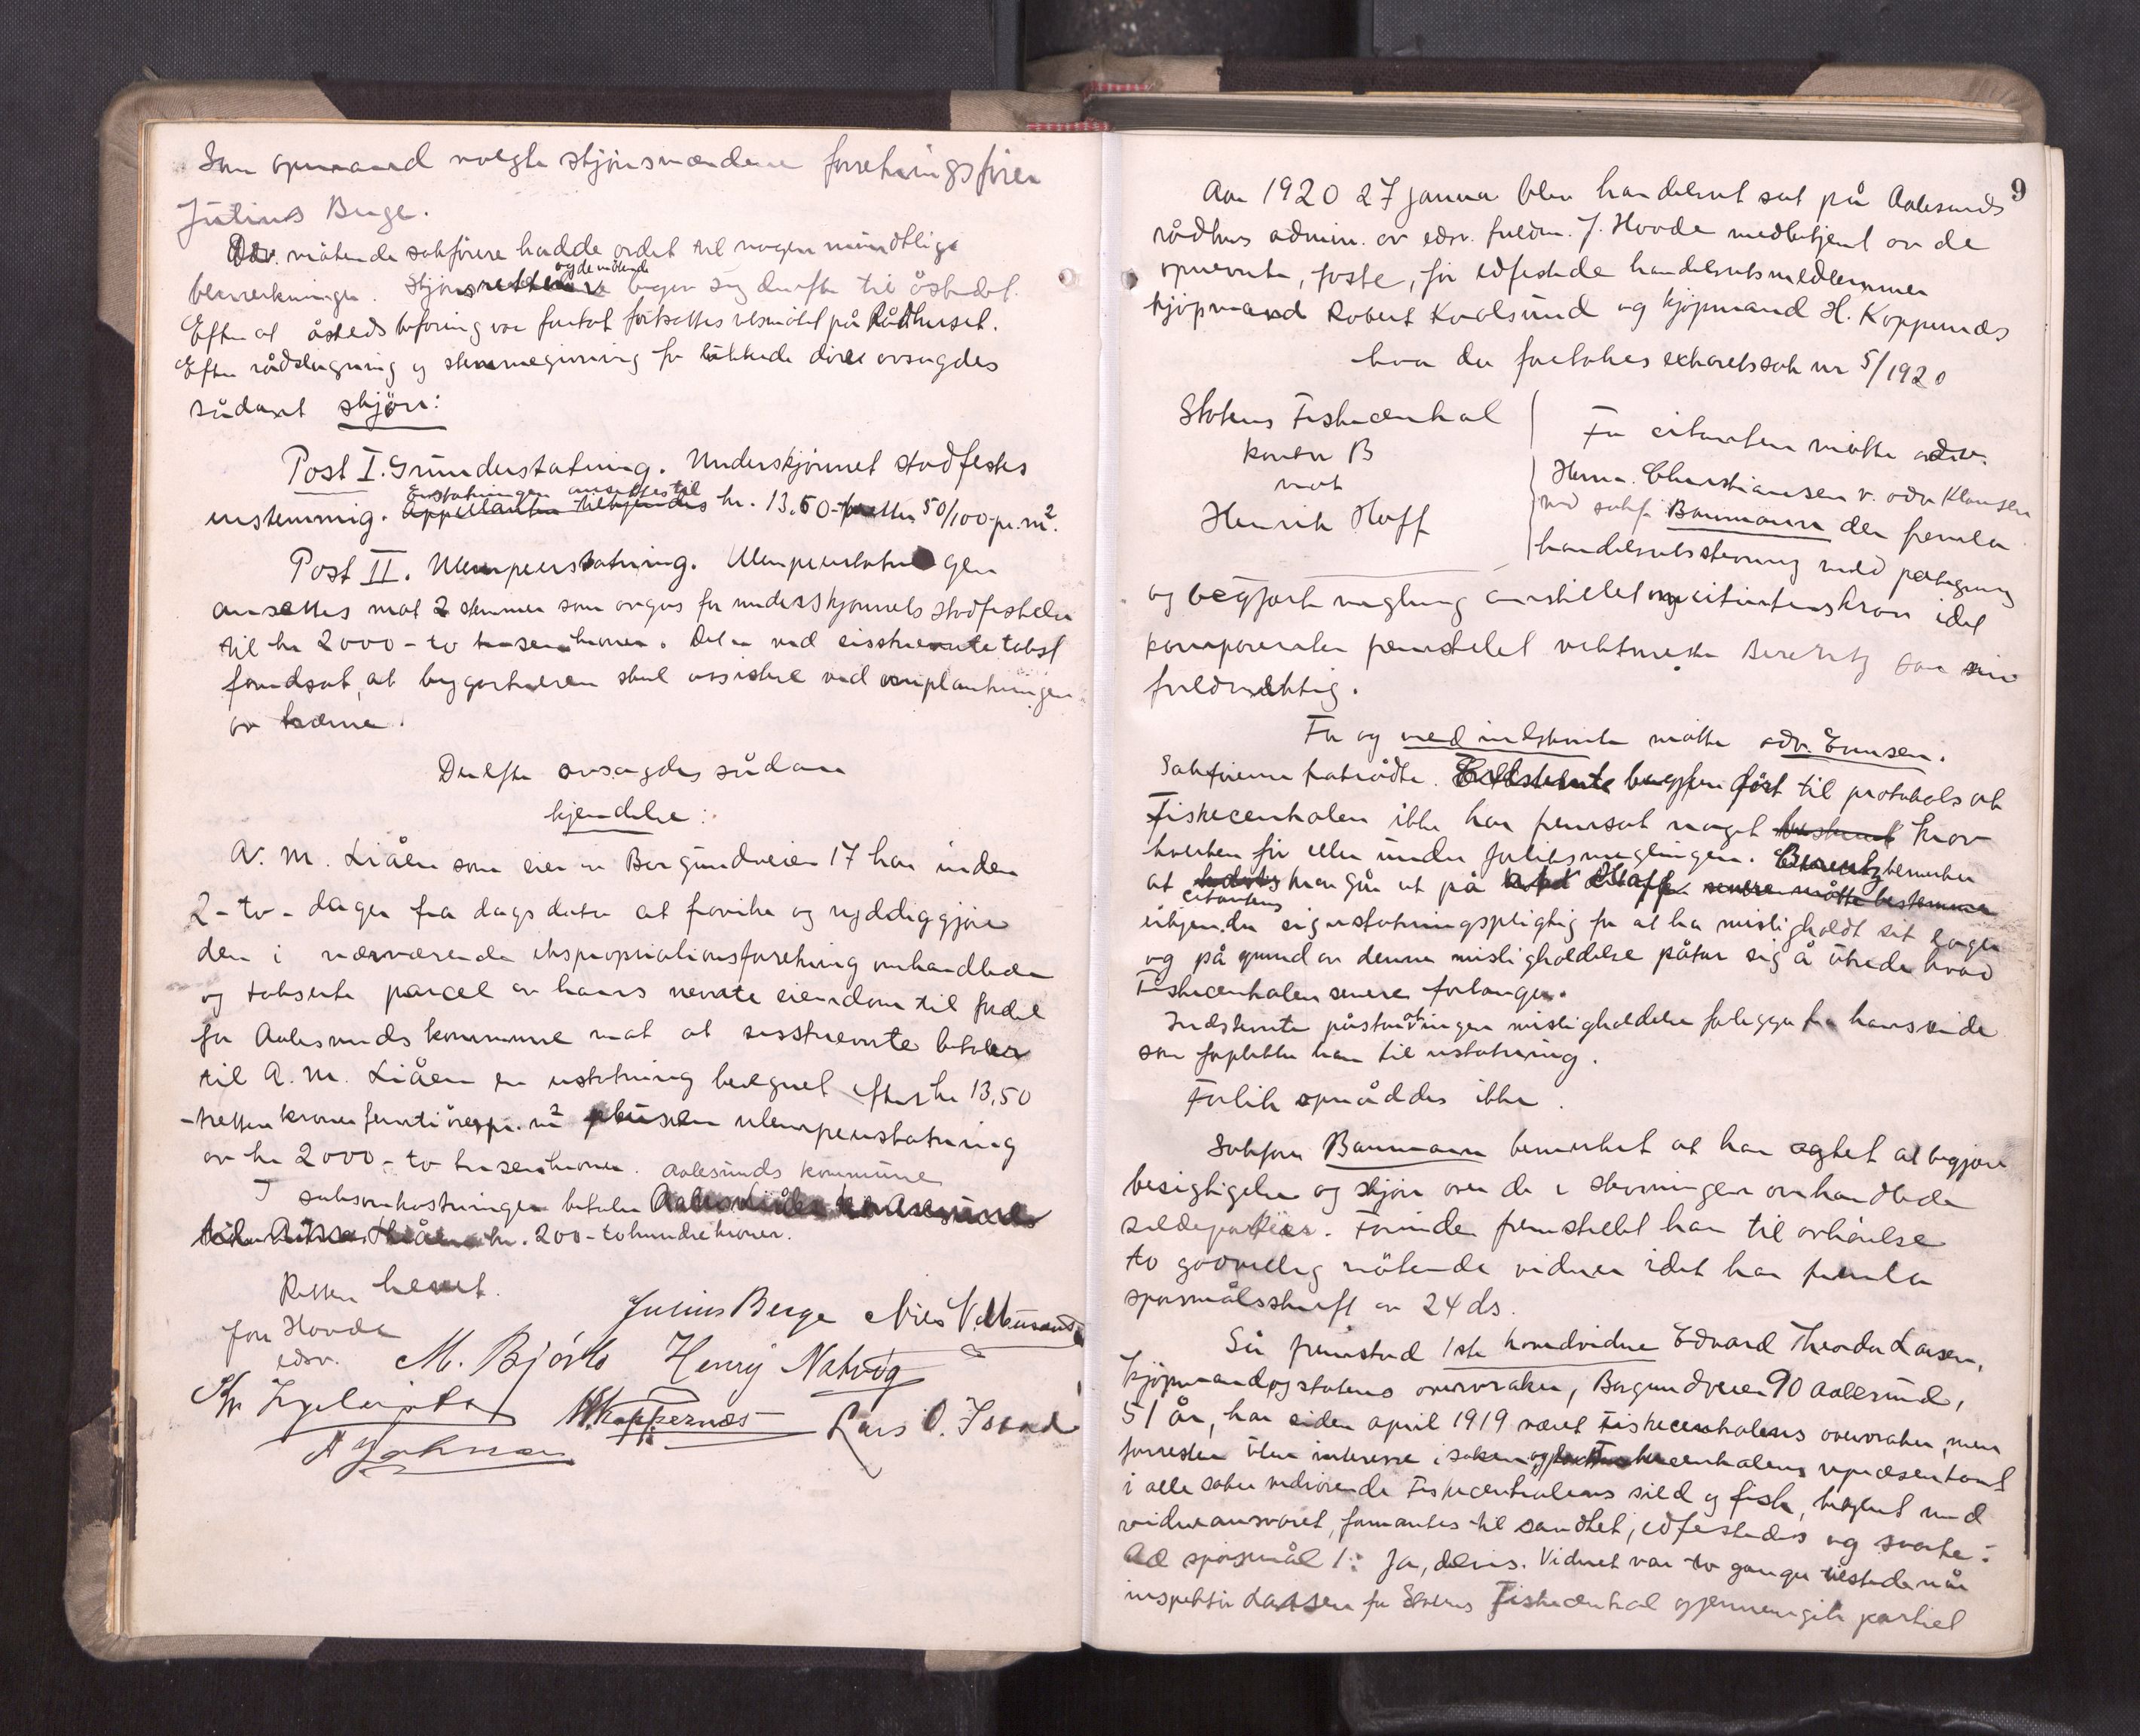 Som opmand valgte skjønsmændene forretningsfører
Julius Berge.
De møtende sakførere hadde ordet til nogen mundtlige
bemerkninger. Skjønsretten og de møtende begav sig derefter til åstedet.
Efter at åstedsbefaring var foretat fortsattes retsmøtet på Rådhuset.
Efter rådslagning og stemmegivning for lukkede døre avsagdes
sådant skjøn:
Post I. Grunderstatning. Underskjønnet stadfestes
enstemmig. Erstatningen ansættes til kr. 13.50 - tretten 50/100 - pr. m².
Post II. Ulempeerstatning. Ulempeerstatningen
ansættes mot 2 stemmer som avgaves for underskjønnets stadfestelse
til kr 2000 - to tusen kroner. Det er ved sisstnevnte takst
forudsat, at bygartneren skal assistere ved omplantningen
av trærne.
Derefter avsagdes sådan
kjendelse:
A. M. Liåen som eier av Borgundveien 17 har inden
2 - to - dager fra dags dato at fravike og ryddiggjøre
den i nærværende ekspropriationsforretning omhandlede
og takserte parcel av hans nevnte eiendom til fordel
for Aalesunds kommune mot at sisstnevnte betaler
til A. M. Liåen en erstatning beregnet efter kr 13,50
- tretten kroner femti øre pr. m² plus en ulempeerstatning
av kr 2000 - to tusen kroner.
I saksomkostninger betaler Aalesunds kommune
til A. M. Liåen kr. 200 - to hundre kroner.
Retten hevet.
Jon Hovde
edsv.
Julius Berge Nils V.
M. Bjørlo Henry Natvig
H. Koppernæs Lars O.
9
Aar 1920 27 januar blev handelsret sat på Aalesunds
rådhus admin. av edsv. fuldm. J. Hovde medbetjent av de
opnevnte, faste, før edfestede handelsretsmedlemmer
kjøpmand Robert Kvalsund og kjøpmand H. Koppernæs
hvor da foretokes extraretssak nr 5/1920
Statens Fiskecentral
kontor B
mot
Henrik Hoff
For citanten møtte adv.
Herm. Christiansen v. adv Klausen
ved sakf. Baumann der fremla
handelsretsstevning med påtegning
og begjært megling anstillet citantens krav idet
komparenten fremstillet som sin
fuldmektig.
For og med indstevnte møtte adv. Evensen.
Sakførerne fratrådte. Indstevnte begjærer ført til protokols at
Fiskecentralen ikke har fremsat noget bestemt krav
hverken før eller under forliksmeglingen. Berentz bemerker
at citantens krav går ut på at Hoff
erkjender sig erstatningspligtig for at ha misligholdt sit lager
og på grund av denne misligholdelse påtar sig å utrede hvad
Fiskecentralen senere forlanger.
Indstevnte påstår at ingen misligholdelse foreligger fra hans side
som forplikter ham til erstatning.
Forlik opnåddes ikke.
Sakfører Baumann bemerket at han agtet at begjære
besigtigelse og skjøn over de i stevningen omhandlede
sildepartier. Forinden fremstillet han til avhørelse
to godvillig møtende vidner idet han fremla
spørsmålsskrift av 24 ds.
Så fremstod 1ste hovedvidne Edvard Theodor Larsen,
kjøpmand og statens overvraker, Borgundveien 90 Aalesund,
51 år, har siden april 1919 været Fiskecentralens overvraker, men
forresten uten interesse i saken og Fiskecentralens repræsentant
i alle saker vedrørende Fiskecentralens sild og fisk, bekjent med
vidneansvaret, formantes til sandhet, edfestedes og svarte:
Ad spørsmål 1: Ja, delvis. Vidnet var to ganger tilstede når
inspektør Larsen fra Statens Fiskecentral gjennemgik partiet